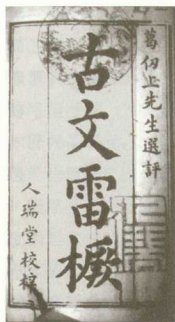 葛仞上先生選評
古文雷橛
人瑞堂校梓